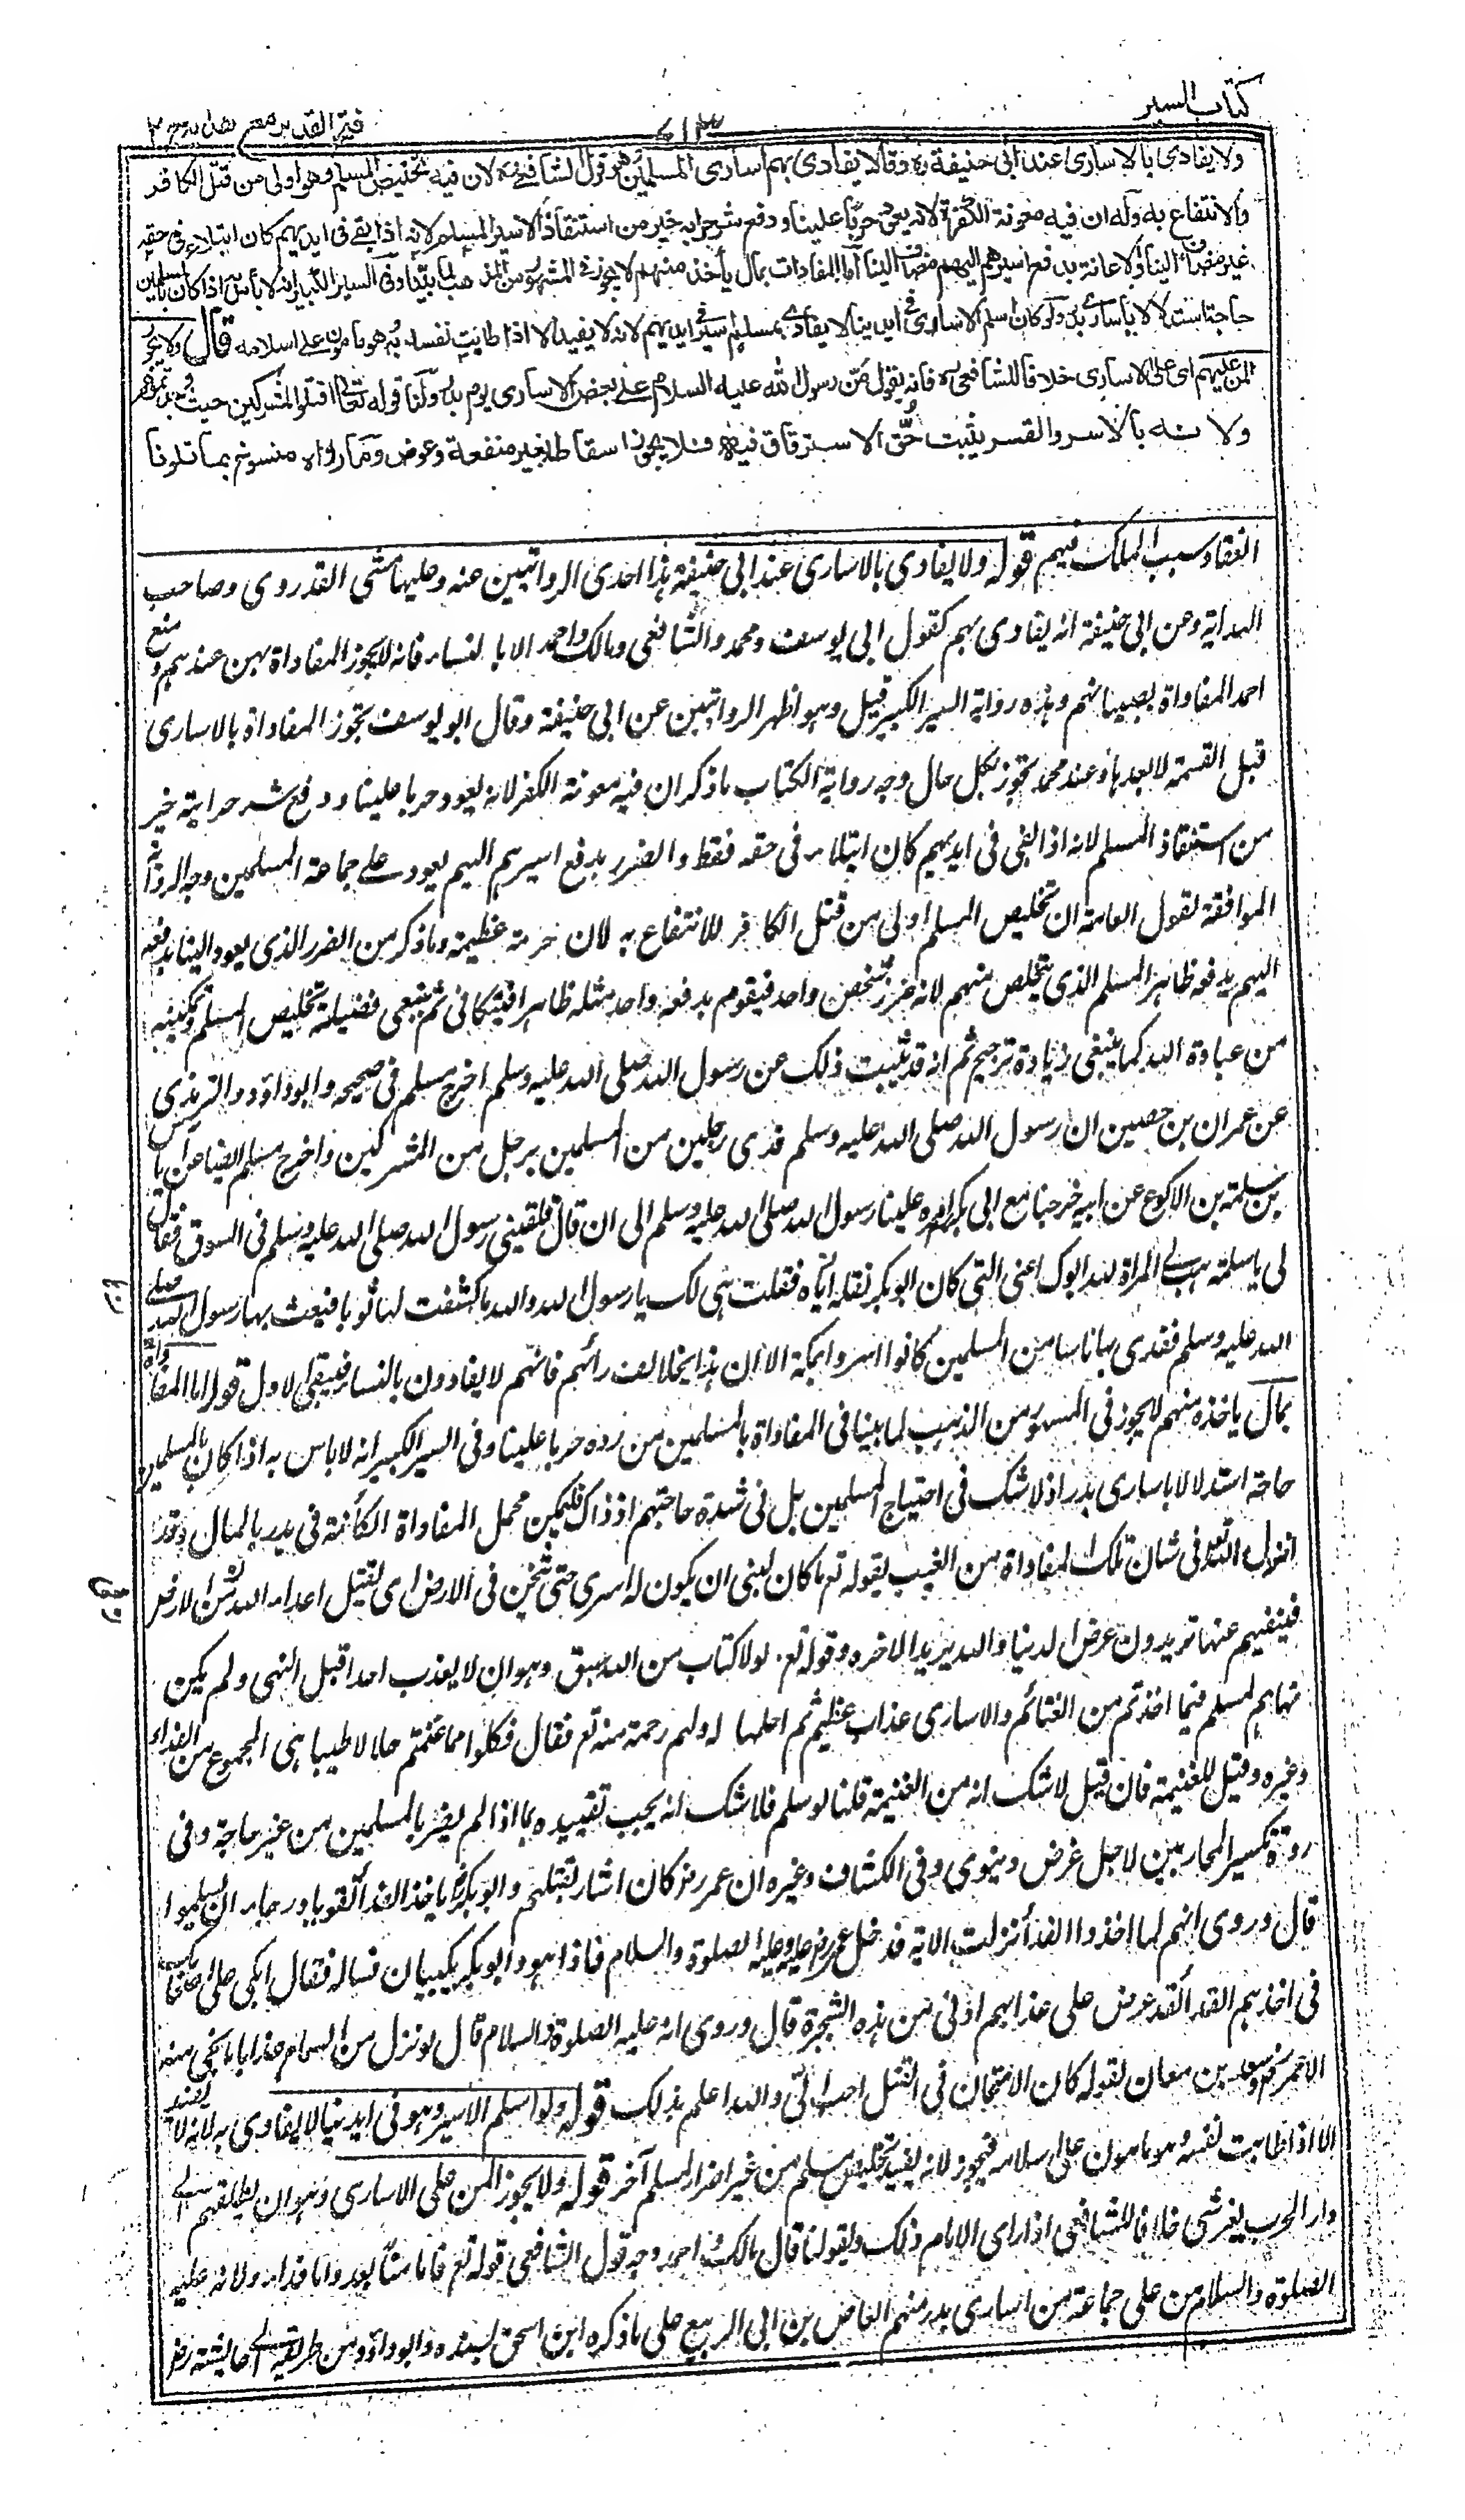 كتاب السير
٧١٣
فتح القدير مع هدايه ج ٢
ولا يفادى بالاسارى عند ابى حنيفة رہ وقالا يفادى بهم اسارى المسلمين وهو قول الشافعى رہ لان فيه تخليص المسلم وهو اولى من قتل الكافر
والانتفاع به وله ان فيه معونة الكفرة لانه يعود حربا علينا ودفع شر حرابه خير من استنقاذ الاسير المسلم لانه اذا بقى فى ايديهم كان ابتلاء فى حقه
غير مضاف الينا والاعانة بدفع اسيرهم اليهم مضاف الينا اما المفادات بمال يأخذه منهم لا يجوز فى المشهور من المذهب لما بينا وفى السير الكبير انه لا بأس به اذا كان بالمسلمين
حاجة استدلالا بأسارى بدر ولو كان اسلم الاسارى فى ايدينا لا يفادى بمسلم اسير فى ايديهم لانه لا يفيد الا اذا طابت نفسه به وهو مامون على اسلامه قال ولا يجوز
المن عليهم اى على الاسارى خلافا للشافعى رہ فانه يقول من رسول الله عليه السلام على بعض الاسارى يوم بدر ولنا قوله تعالى اقتلوا المشركين حيث وجدتموهم
ولانه بالاسر والقسر يثبت حق الاسترقاق فيه فلا يجوز اسقاطه بغير منفعة وعوض وما رواه منسوخ بما تلونا
انعقاد سبب الملك فيهم قوله ولا يفادى بالاسارى عند ابى حنيفة هذا احدى الروايتين عنه وعليها مشى القدورى وصاحب
الهداية وعن ابى حنيفة انه يفادى بهم كقول ابى يوسف ومحمد والشافعى ومالك واحمد الا بالنساء فانه لا يجوز المفاداة بهن عندهم ومنع
احمد المفاداة بصبيانهم وهذه رواية السير الكبير قيل وهو اظهر الروايتين عن ابى حنيفة وقال ابو يوسف تجوز المفاداة بالاسارى
قبل القسمة لا بعدها وعند محمد تجوز بكل حال وجه رواية الكتاب ما ذكر ان فيه معونة الكفر لانه يعود حربا علينا ودفع شر حرابته خير
من استنقاذ المسلم لانه اذا بقى فى ايديهم كان ابتلاء فى حقه فقط والضرر بدفع اسيرهم اليهم يعود على جماعة المسلمين وجه الرواية
الموافقة لقول العامة ان تخليص المسلم اولى من قتل الكافر للانتفاع به لان حرمته عظيمة وما ذكر من الضرر الذى يعود الينا بدفعه
اليهم يدفعه ظاهرا المسلم الذى يتخلص منهم لانه ضرر شخص واحد فيقوم بدفعه واحد مثله ظاهرا فيتكافئ ثم يبقى فضيلة تخليص المسلم وتمكينه
من عبادة الله كما ينبغى زيادة ترجيح ثم انه قد ثبت ذلك عن رسول الله صلى الله عليه وسلم اخرج مسلم فى صحيحه وابو داود والترمذى
عن عمران بن حصين ان رسول الله صلى الله عليه وسلم فدى رجلين من المسلمين برجل من المشركين واخرج مسلم ايضا عن اياس
بن سلمة بن الاكوع عن ابيه خرجنا مع ابى بكر امره علينا رسول الله صلى الله عليه وسلم الى ان قال فلقينى رسول الله صلى الله عليه وسلم فى السوق فقال
لى يا سلمة هب لى المراة لله ابوك اعنى التى كان ابو بكر نفله اياه فقلت هى لك يا رسول الله والله ما كشفت لها ثوبا فبعث بها رسول الله صلى
الله عليه وسلم ففدى بها ناسا من المسلمين كانوا اسروا بمكة الا ان هذا يخالف رائهم فانهم لا يفادون بالنساء فيبقى الاول قوله اما المفاداة
بمال ياخذه منهم لا يجوز فى المشهور من المذهب لما بينا فى المفاداة بالمسلمين من رده حربا علينا وفى السير الكبير انه لا باس به اذا كان بالمسلمين
حاجة استدلالا باسارى بدر اذ لا شك فى احتياج المسلمين بل فى شدة حاجتهم اذ ذاك فليكن محمل المفاداة الكائنة فى بدر بالمال وقد
انزل الله تعالى فى شان تلك المفاداة من العتب بقوله تع ما كان لنبى ان يكون له اسرى حتى يثخن فى الارض اى يقتل اعداء الله من الارض
فينفيهم عنها تريدون عرض الدنيا والله يريد الاخره وقوله تع لولا كتاب من الله سبق وهو ان لا يعذب احدا قبل النهى ولم يكن
نهاهم لمسكم فيما اخذتم من الغنائم والاسارى عذاب عظيم ثم احلها له ولهم رحمة منه تع فقال فكلوا مما غنمتم حلالا طيبا هى المجموع من الفداء
وغيره وقيل للغنيمة فان قيل لا شك انه من الغنيمة قلنا لو سلم فلا شك انه يجب تقييده بما اذا لم يضر بالمسلمين من غير حاجة وفى
رده تكسير المحاربين لاجل غرض دنيوى وفى الكشاف وغيره ان عمر رض كان اشار بقتلهم وابو بكر رض باخذ الفداء تقويا ورجاء ان يسلموا
قال وروى انهم لما اخذوا الفداء نزلت الاية فدخل عمر رض عليه وعليه الصلوة والسلام فاذا هو وابو بكر يبكيان فساله فقال ابكى على اصحابك
فى اخذهم الفداء لقد عرض على عذابهم ادنى من هذه الشجرة قال وروى انه عليه الصلوة والسلام قال لو نزل من السماء عذابا ما نجى منه
الا عمر وسعد بن معاذ لقوله كان الاثخان فى القتل احب الى والله اعلم بذلك قوله ولو اسلم الاسير وهو فى ايدينا لا يفادى به لانه لا يفيد
الا اذا طابت نفسه وهو مامون على اسلامه فيجوز لانه يفيد تخليص مسلم من غير اضرار لمسلم آخر قوله ولا يجوز المن على الاسارى وهو ان يطلقهم الى
دار الحرب بغير شئ خلافا للشافعى اذا راى الامام ذلك وبقولنا قال مالك واحمد وجه قول الشافعى قوله تع فاما منا بعد واما فداء ولانه عليه
الصلوة والسلام من على جماعة من اسارى بدر منهم العاص بن ابى الربيع على ما ذكره ابن اسحق بسنده وابو داود من طريقه الى عائشة رض